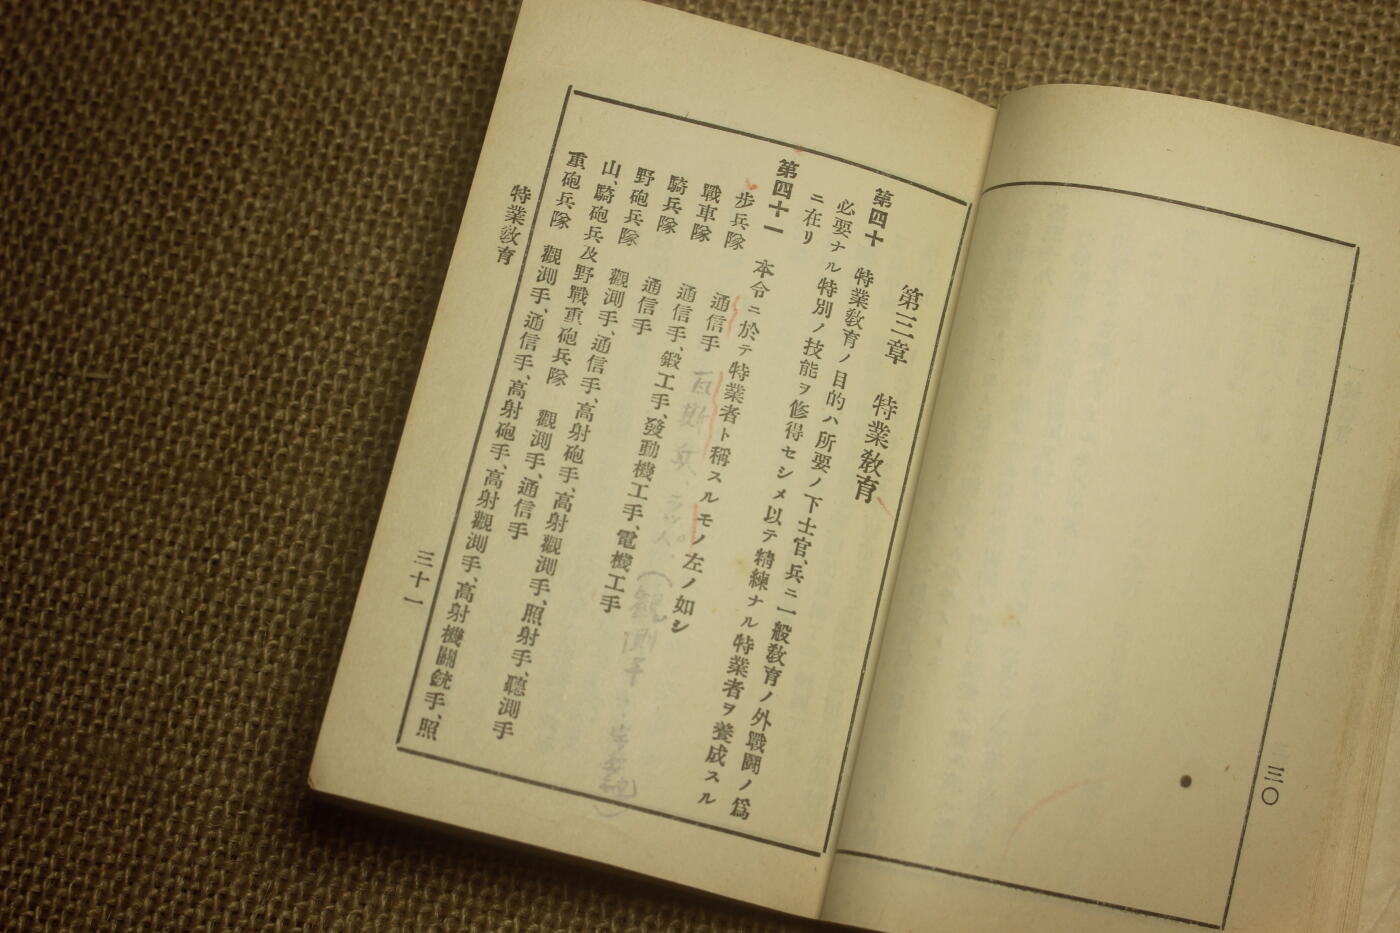 三〇
第三章　特業敎育
第四十　特業敎育ノ目的ハ所要ノ下士官、兵ニ一般敎育ノ外戰鬪ノ爲
必要ナル特別ノ技能ヲ修得セシメ以テ精練ナル特業者ヲ養成スル
ニ在リ
第四十一　本令ニ於テ特業者ト稱スルモノ左ノ如シ
步兵隊　通信手　瓦斯兵、ラッパ、(觀測手
戰車隊　通信手、鍛工手、發動機工手、電機工手
騎兵隊　通信手
野砲兵隊　觀測手、通信手、高射砲手、高射觀測手、照射手、聽測手
山、騎砲兵及野戰重砲兵隊　觀測手、通信手
重砲兵隊　觀測手、通信手、高射砲手、高射觀測手、高射機關銃手、照
特業敎育
三十一